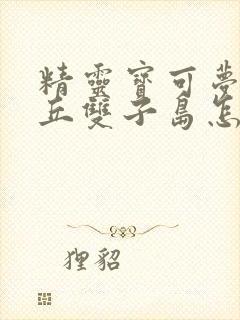 精靈寶可夢
丘雙子島怎
狸貂